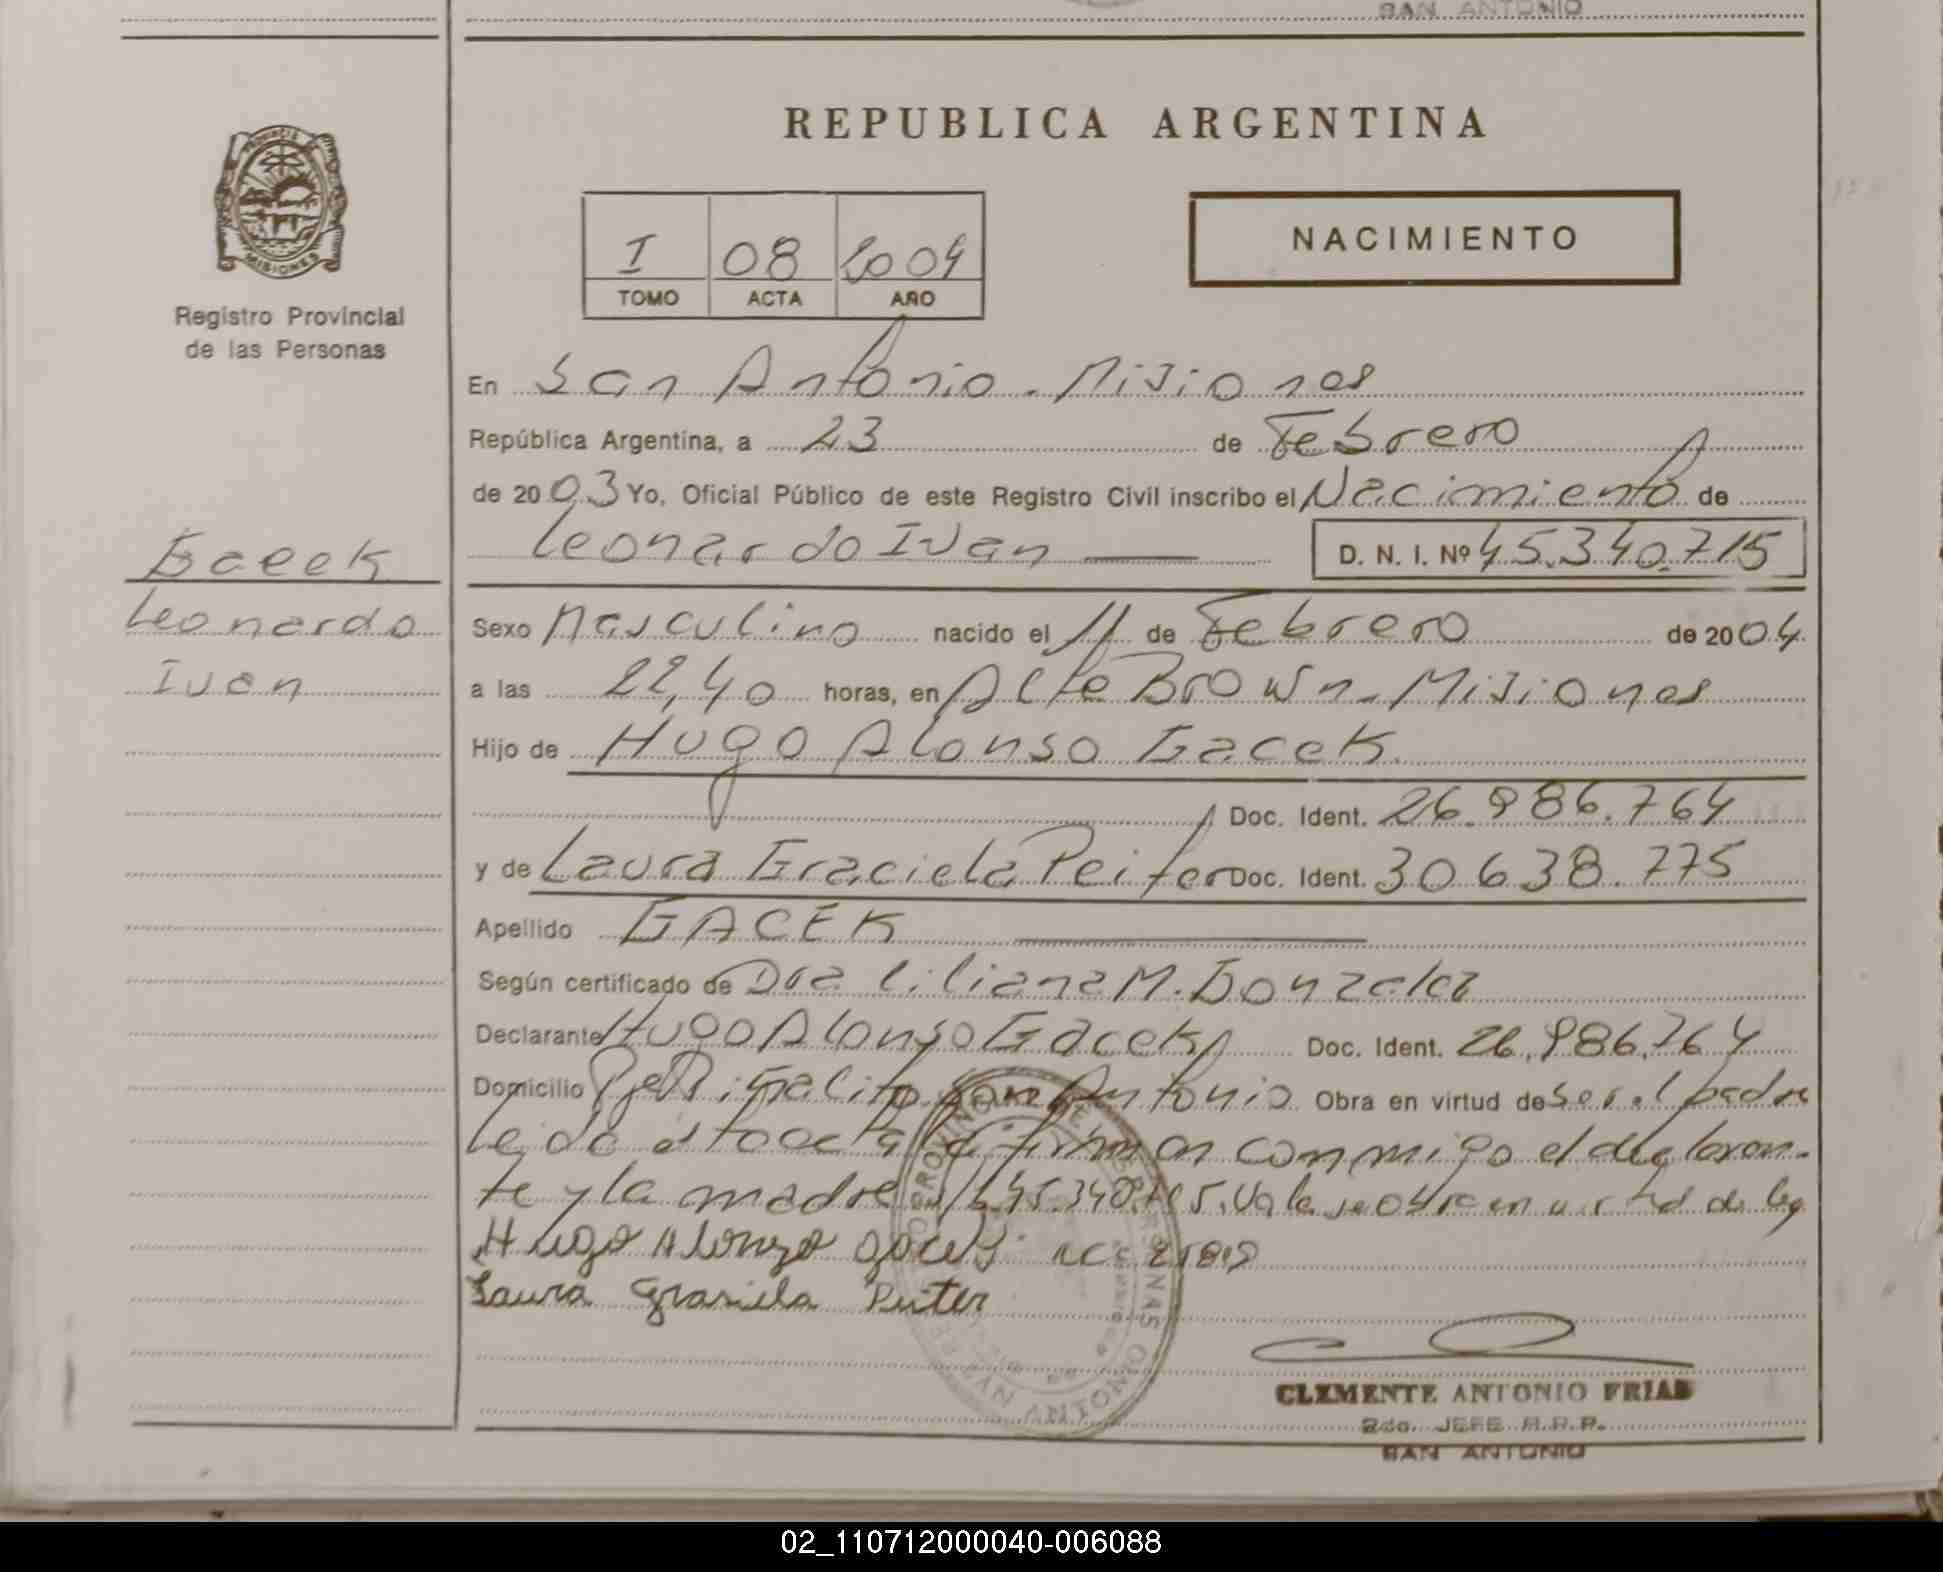 SAN ANTONIO
REPUBLICA ARGENTINA
PROVINCIA DE
MISIONES
Registro Provincial
de las Personas
I 08 2004
TOMO ACTA AÑO
NACIMIENTO
En San Antonio. Misiones
República Argentina, a 23 de Febrero
de 2003 Yo, Oficial Público de este Registro Civil inscribo el Nacimiento de
Leonardo Ivan D. N. I. Nº 45.340.715
Gacek
Leonardo
Ivan
Sexo Masculino nacido el 11 de Febrero de 2004.
a las 22,40 horas, en Alte Brown. Misiones
Hijo de Hugo Alonso Gacek
Doc. Ident. 26.986.764
y de Laura Graciela Peifer Doc. Ident. 30638.775
Apellido GACEK
Según certificado de Dra Liliana M. Gonzalez
Declarante Hugo Alonso Gacek Doc. Ident. 26.986.764
Domicilio San Antonio Obra en virtud de ser el padre
Leido el to acta la firman conmigo el declaran-
te y la madre 45.340.715. Vale se obra en virtud de ley
Hugo Alonzo gacek
Laura Grasiela Peifer
CLEMENTE ANTONIO FRIAS
2do. JEFE R.R.P.
SAN ANTONIO
02_110712000040-006088